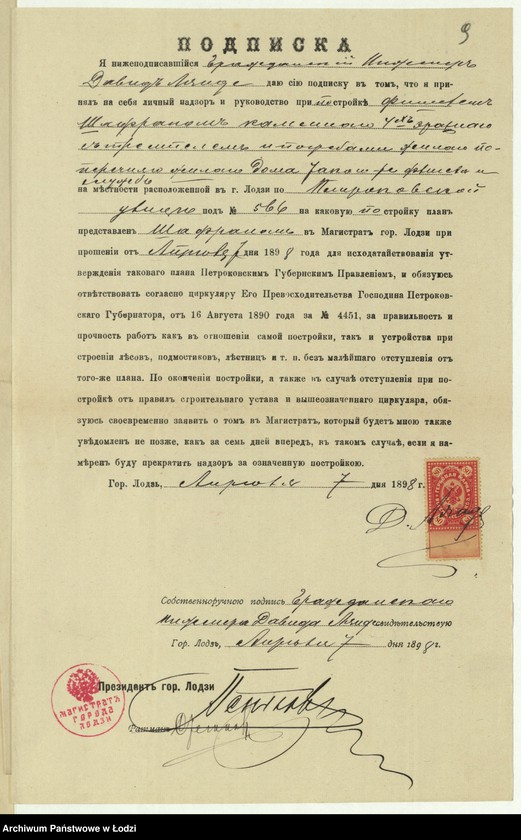 9
ПОДПИСКА
Я нижеподписавшійся Гражданскій Инженеръ
Давидъ Ланде даю сію подписку въ томъ, что я при-
нялъ на себя личный надзоръ и руководство при постройкѣ
Шафраномъ каменнаго 4хъ этажнаго
жилаго по-
перечнаго жилаго дома такой же
службы
на мѣстности расположенной въ г. Лодзи по Петроковской
улицѣ подъ № 566 на каковую постройку планъ
представленъ Шафраномъ въ Магистратъ гор. Лодзи при
прошеніи отъ Апрѣля 7 дня 1898 года для исходатайствованія ут-
вержденія таковаго плана Петроковскимъ Губернскимъ Правленіемъ, и обязуюсь
отвѣтствовать согласно циркуляру Его Превосходительства Господина Петроков-
скаго Губернатора, отъ 16 Августа 1890 года за № 4451, за правильность и
прочность работъ какъ въ отношеніи самой постройки, такъ и устройства при
строеніи лѣсовъ, подмостиковъ, лѣстницъ и т. п. безъ малѣйшаго отступленія отъ
того-же плана. По окончаніи постройки, а также въ случаѣ отступленія при по-
стройкѣ отъ правилъ строительнаго устава и вышеозначеннаго циркуляра, обя-
зуюсь своевременно заявить о томъ въ Магистратъ, который будетъ мною также
увѣдомленъ не позже, какъ за семь дней впередъ, въ такомъ случаѣ, если я на-
мѣренъ буду прекратить надзоръ за означенную постройкою.
Гор. Лодзь, Апрѣля 7 дня 1898 г.
Д. Ланде
Собственноручною подпись Гражданскаго
Инженера Давида Ланде свидѣтельствую
Гор. Лодзь, Апрѣля 7 дня 1898 г.
Президентъ гор. Лодзи
МАГИСТРАТЪ
ГОРОДА
ЛОДЗИ
Ратманъ
Archiwum Państwowe w Łodzi